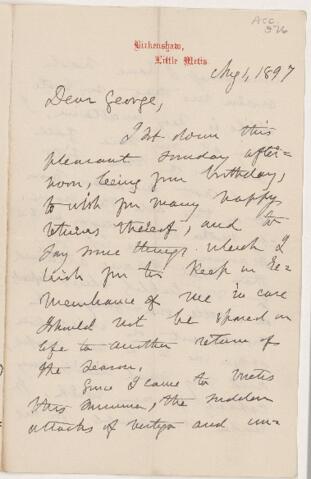 Acc
976
Birkenshaw,
Little Metis
Aug 1, 1897
Dear George,
I sit down this
pleasant Sunday after=
noon, being your birthday,
to wish you many happy
returns thereof, and to
say some things which I
wish you to keep in re=
membrance of me in case
I should not be spared in
life to another return of
the season.
Since I came to Metis
this summer, the sudden
attacks of vertigo and un=